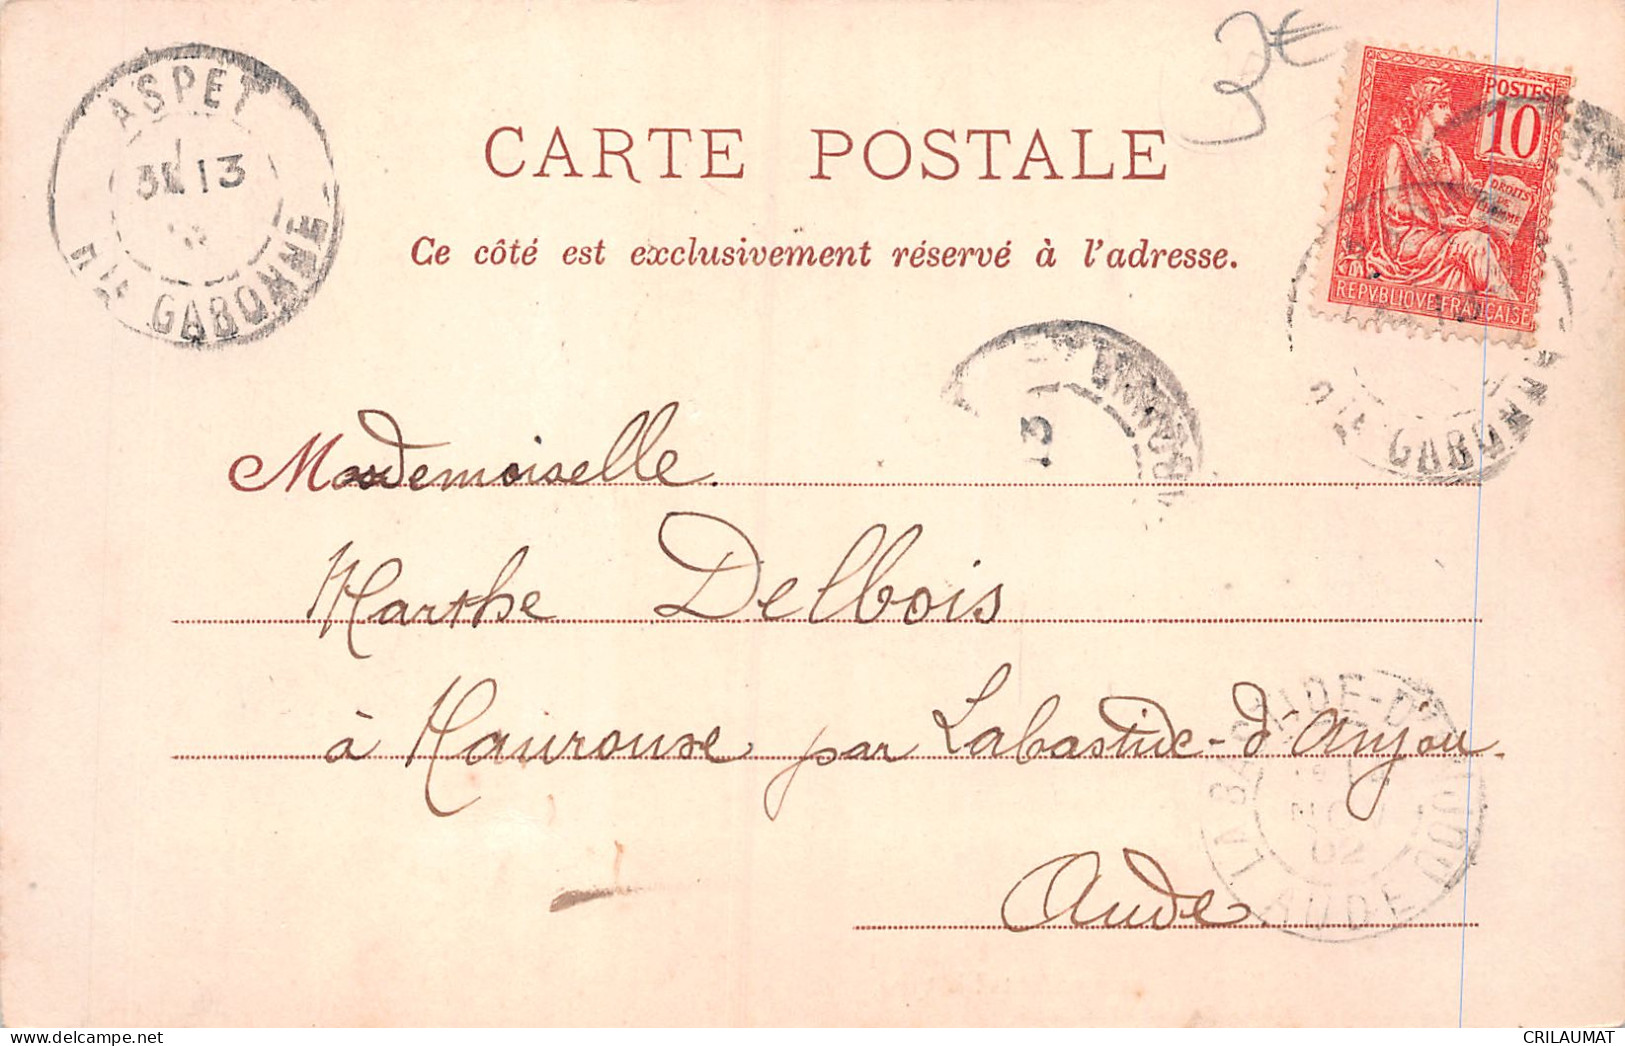 3€
ASPET
13
Hte GARONNE
POSTES
10
DROITS
DE
L'HOMME
REPVBLIQVE FRANÇAISE
CARTE POSTALE
Ce côté est exclusivement réservé à l'adresse.
Hte GARONNE
13
Mademoiselle.
Marthe Delbois
à Mairouse par Labastide-d'Anjou.
Aude
LA BASTIDE-D'ANJOU
NOV
02
AUDE
CRILAUMAT